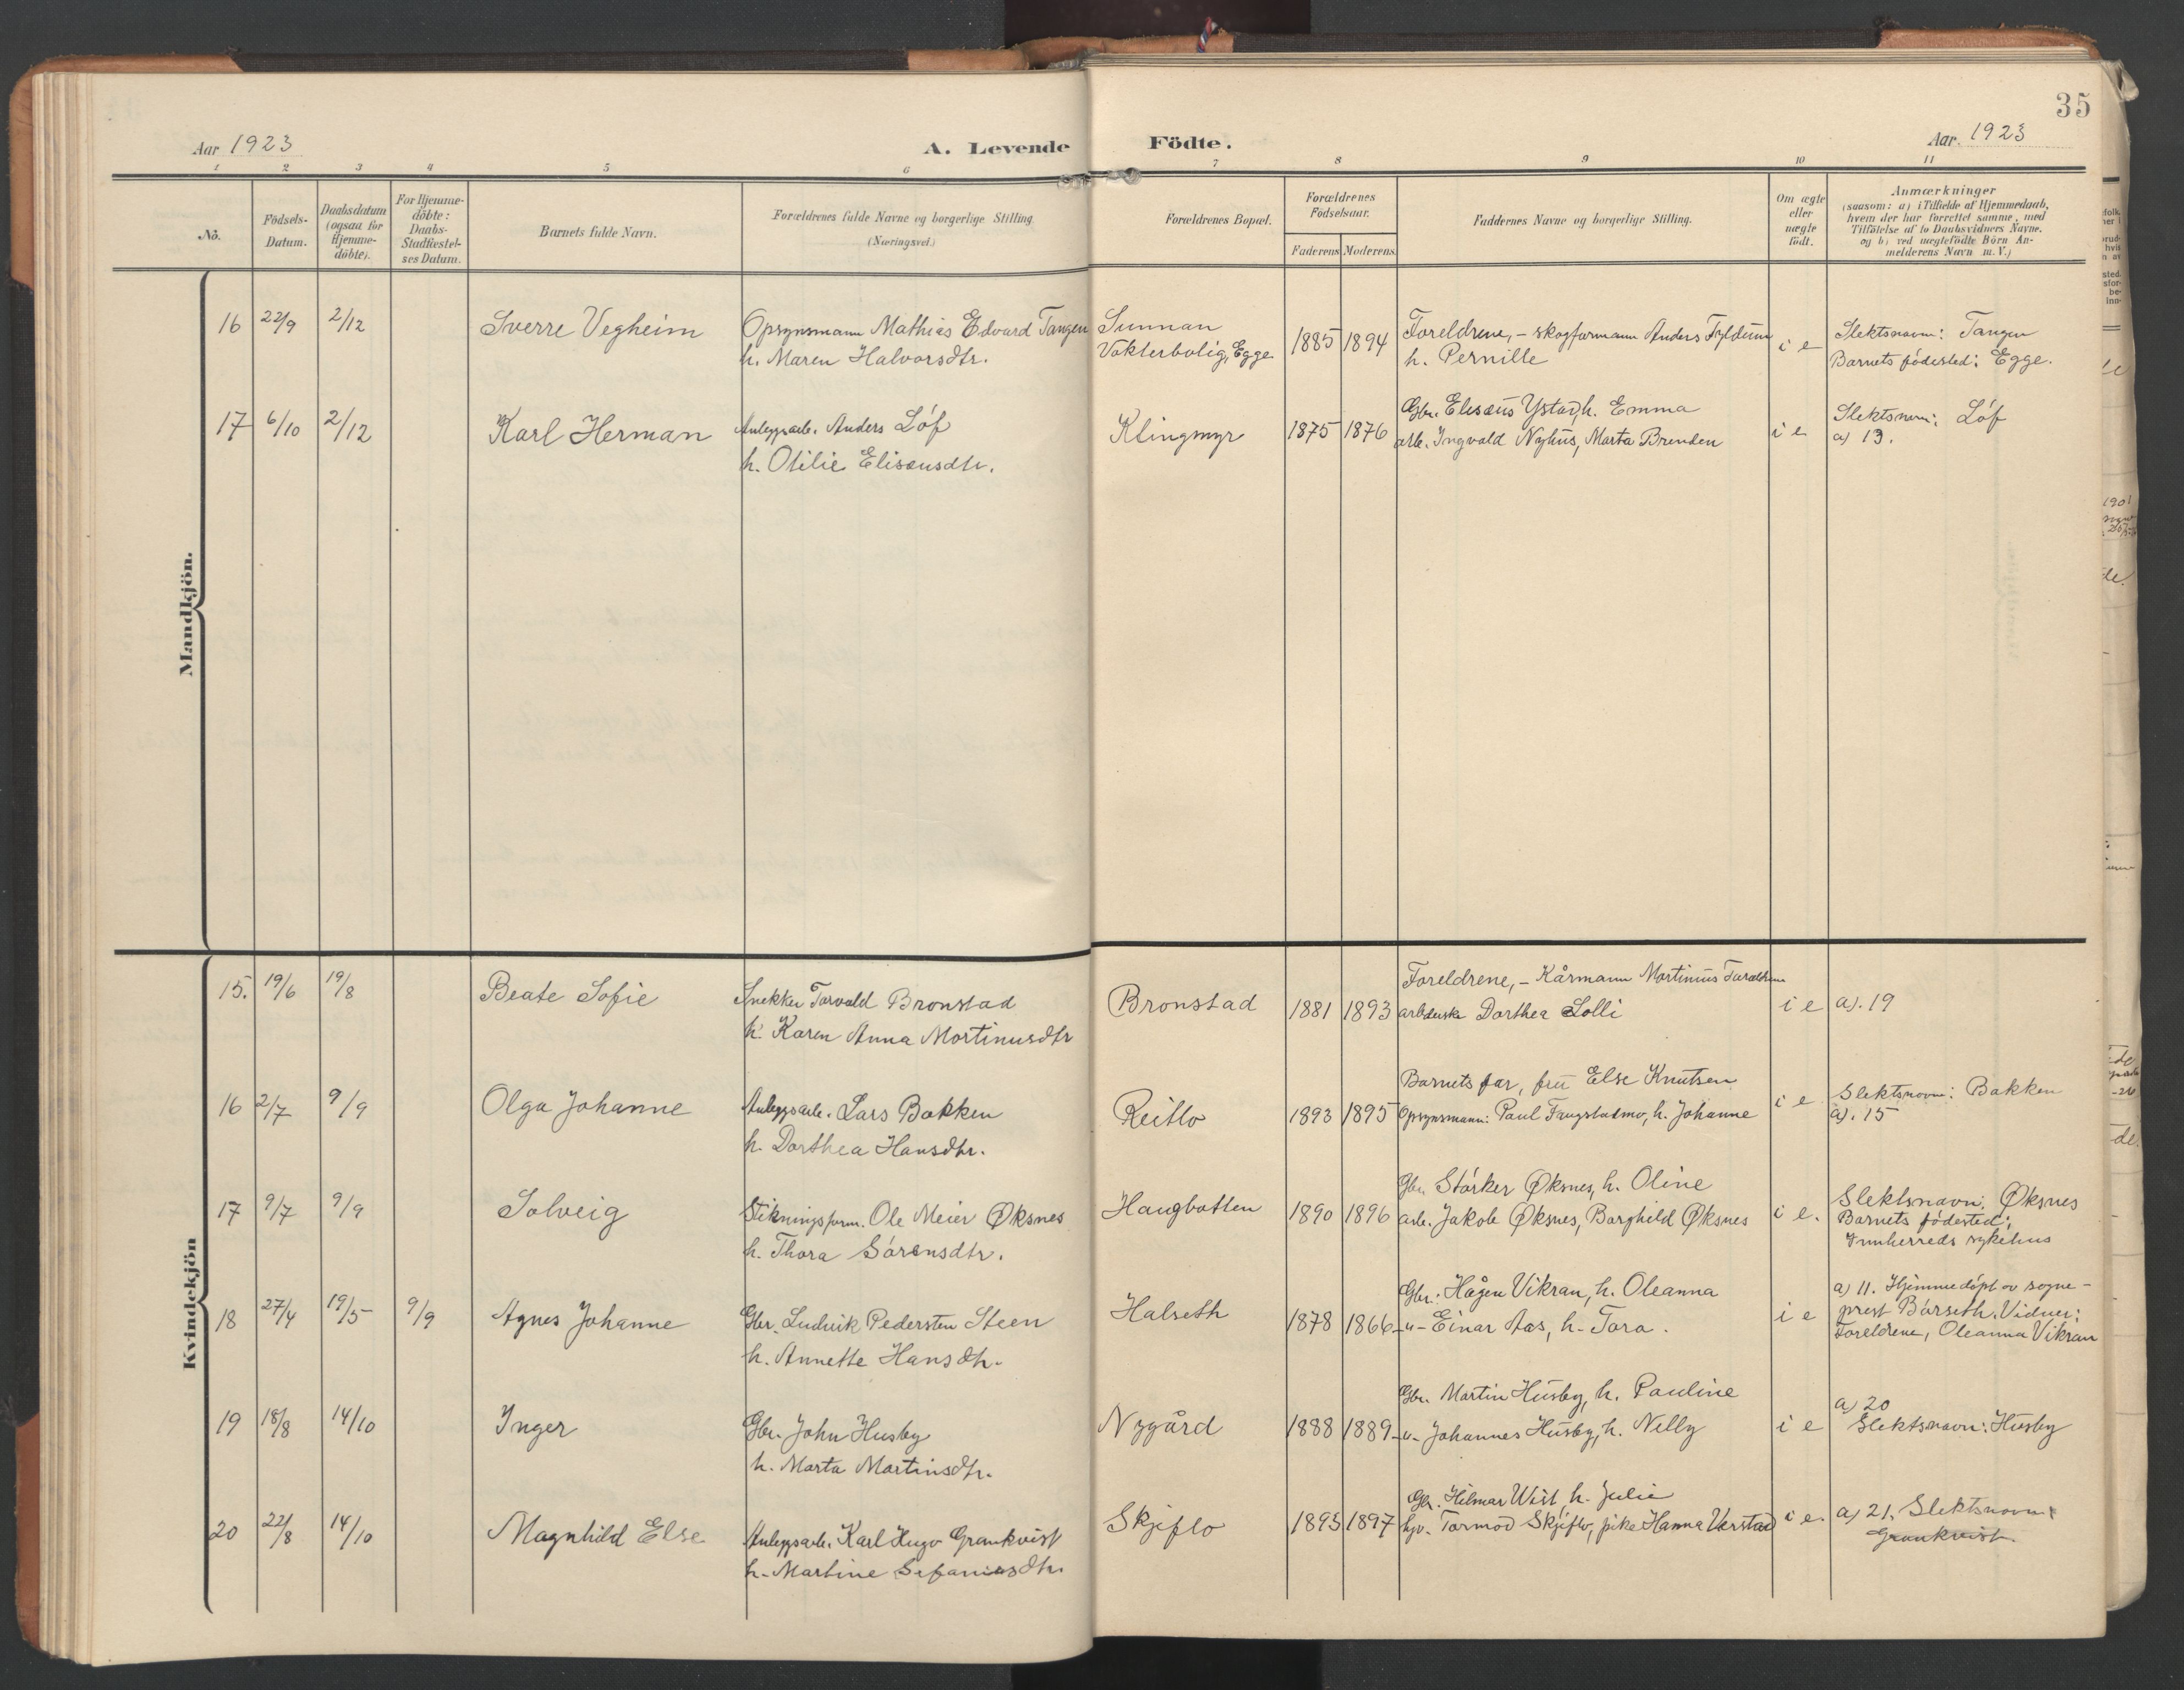 35
Aar 1923
A. Levende Födte.
Aar. 1923
1 2 3 4 5 6 7 8 9 10 11
No.
Födsels-
Datum.
Daabsdatum
(ogsaa for
Hjemme-
döbte).
For Hjemme-
döbte:
Daabs-
Stadfæstel-
ses Datum.
Barnets fulde Navn.
Forældrenes fulde Navne og borgerlige Stilling
(Næringsvei.)
Forældrenes Bopæl.
Forældrenes
Födselsaar.
Faderens Moderens
Faddernes Navne og borgerlige Stilling.
Om ægte
eller
uægte
födt.
Anmærkninger
(saasom: a) i Tilfælde af Hjemmedaab,
hvem der har forrettet samme, med
Tilföielse af to Daabsvidners Navne.
og b) ved uægtefödte Börn An-
melderens Navn m. V.)
Mandkjön.
16 22/9 2/12 Sverre Vegheim
Opsynsmann Mathias Edvard Tangen
h. Maren Halvorsdtr.
Sunnan
Vokterbolig, Egge
1885 1894
Foreldrene, - skogformann Anders Fyldum
h. Pernille
i e
Slektsnavn: Tangen
Barnets födested: Egge.
17 6/10 2/12 Karl Herman
Anleggsarb. Anders Löf
h. Otilie Eliseusdtr.
Klingmyr
1875 1876
Gbr. Eliseus Ystad, h. Emma
arb. Ingvald Nyhus, Marta Brenden
i e
Slektsnavn: Löf
a) 13.
Kvindekjön
15. 19/6 19/8 Beate Sofie
Snekker Torvald Bronstad
h. Karen Anna Mortinusdtr
Bronstad
1881 1893
Foreldrene, - Kårmann Mortinus
Dorthea Lolli
i e
a). 19
16 2/7 9/9 Olga Johanne
Anleggsarb. Lars Bakken
h. Dorthea Hansdtr.
Reitlo
1893 1895
Barnets far, fru Else Knutsen
Opsynsmann: Paul Faugstadmo, h. Johanne
i e
Slektsnavn: Bakken
a). 15
17 9/7 9/9 Solveig
Stikningsform. Ole Meier Øksnes
h. Thora Sörensdtr.
Haugbotten
1890 1896
Gbr. Störker Øksnes, h. Oline
arb. Jakob Øksnes, Borghild Øksnes
i e.
Slektsnavn: Øksnes
Barnets födested:
Innherreds sykehus
18 27/4 19/5 9/9 Agnes Johanne
Gbr. Ludvik Pedersen Steen
h. Annette Hansdtr.
Halseth
1878 1866
Gbr. Hågen Vikran, h. Oleanna
-"- Einar Aas, h. Tora.
i e
a) 11. Hjemmedöpt av sogne-
prest Bårseth. Vidner:
Foreldrene, Oleanna Vikran
19 18/8 14/10 Inger
Gbr. John Husby
h. Marta Martinsdtr.
Nygård
1888 1889
Gbr. Martin Husby, h. Pauline
-"- Johannes Husby, h. Nelly
i e
a) 20
Slektsnavn: Husby
20 22/8 14/10 Magnhild Else
Anleggsarb. Karl Hugo Grankvist
h. Martine Sefaniasdtr.
Skjeflo
1893 1897
Gbr. Hilmar Wist, h. Julie
Tormod Skjeflo, pike Hanna Verstad
i e.
a) 21. Slektsnavn:
Grankvist.